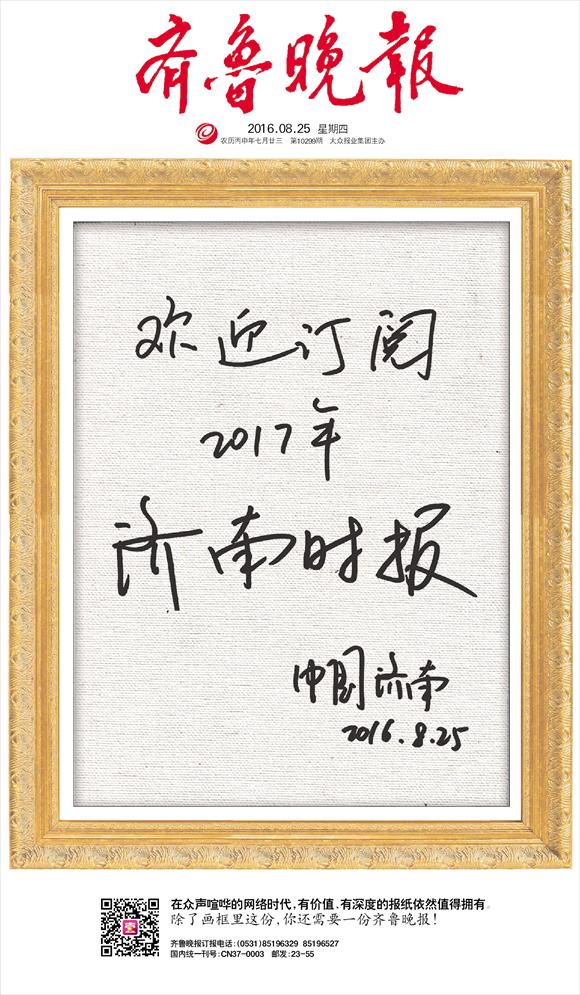 齐鲁晚報
2016.08.25 星期四
农历丙申年七月廿三 第10299期 大众报业集团主办
欢迎订阅
2017年
济南时报
中国济南
2016.8.25
在众声喧哗的网络时代,有价值、有深度的报纸依然值得拥有。
除了画框里这份,你还需要一份齐鲁晚报!
齐鲁晚报订报电话:(0531)85196329 85196527
国内统一刊号:CN37-0003 邮发:23-55